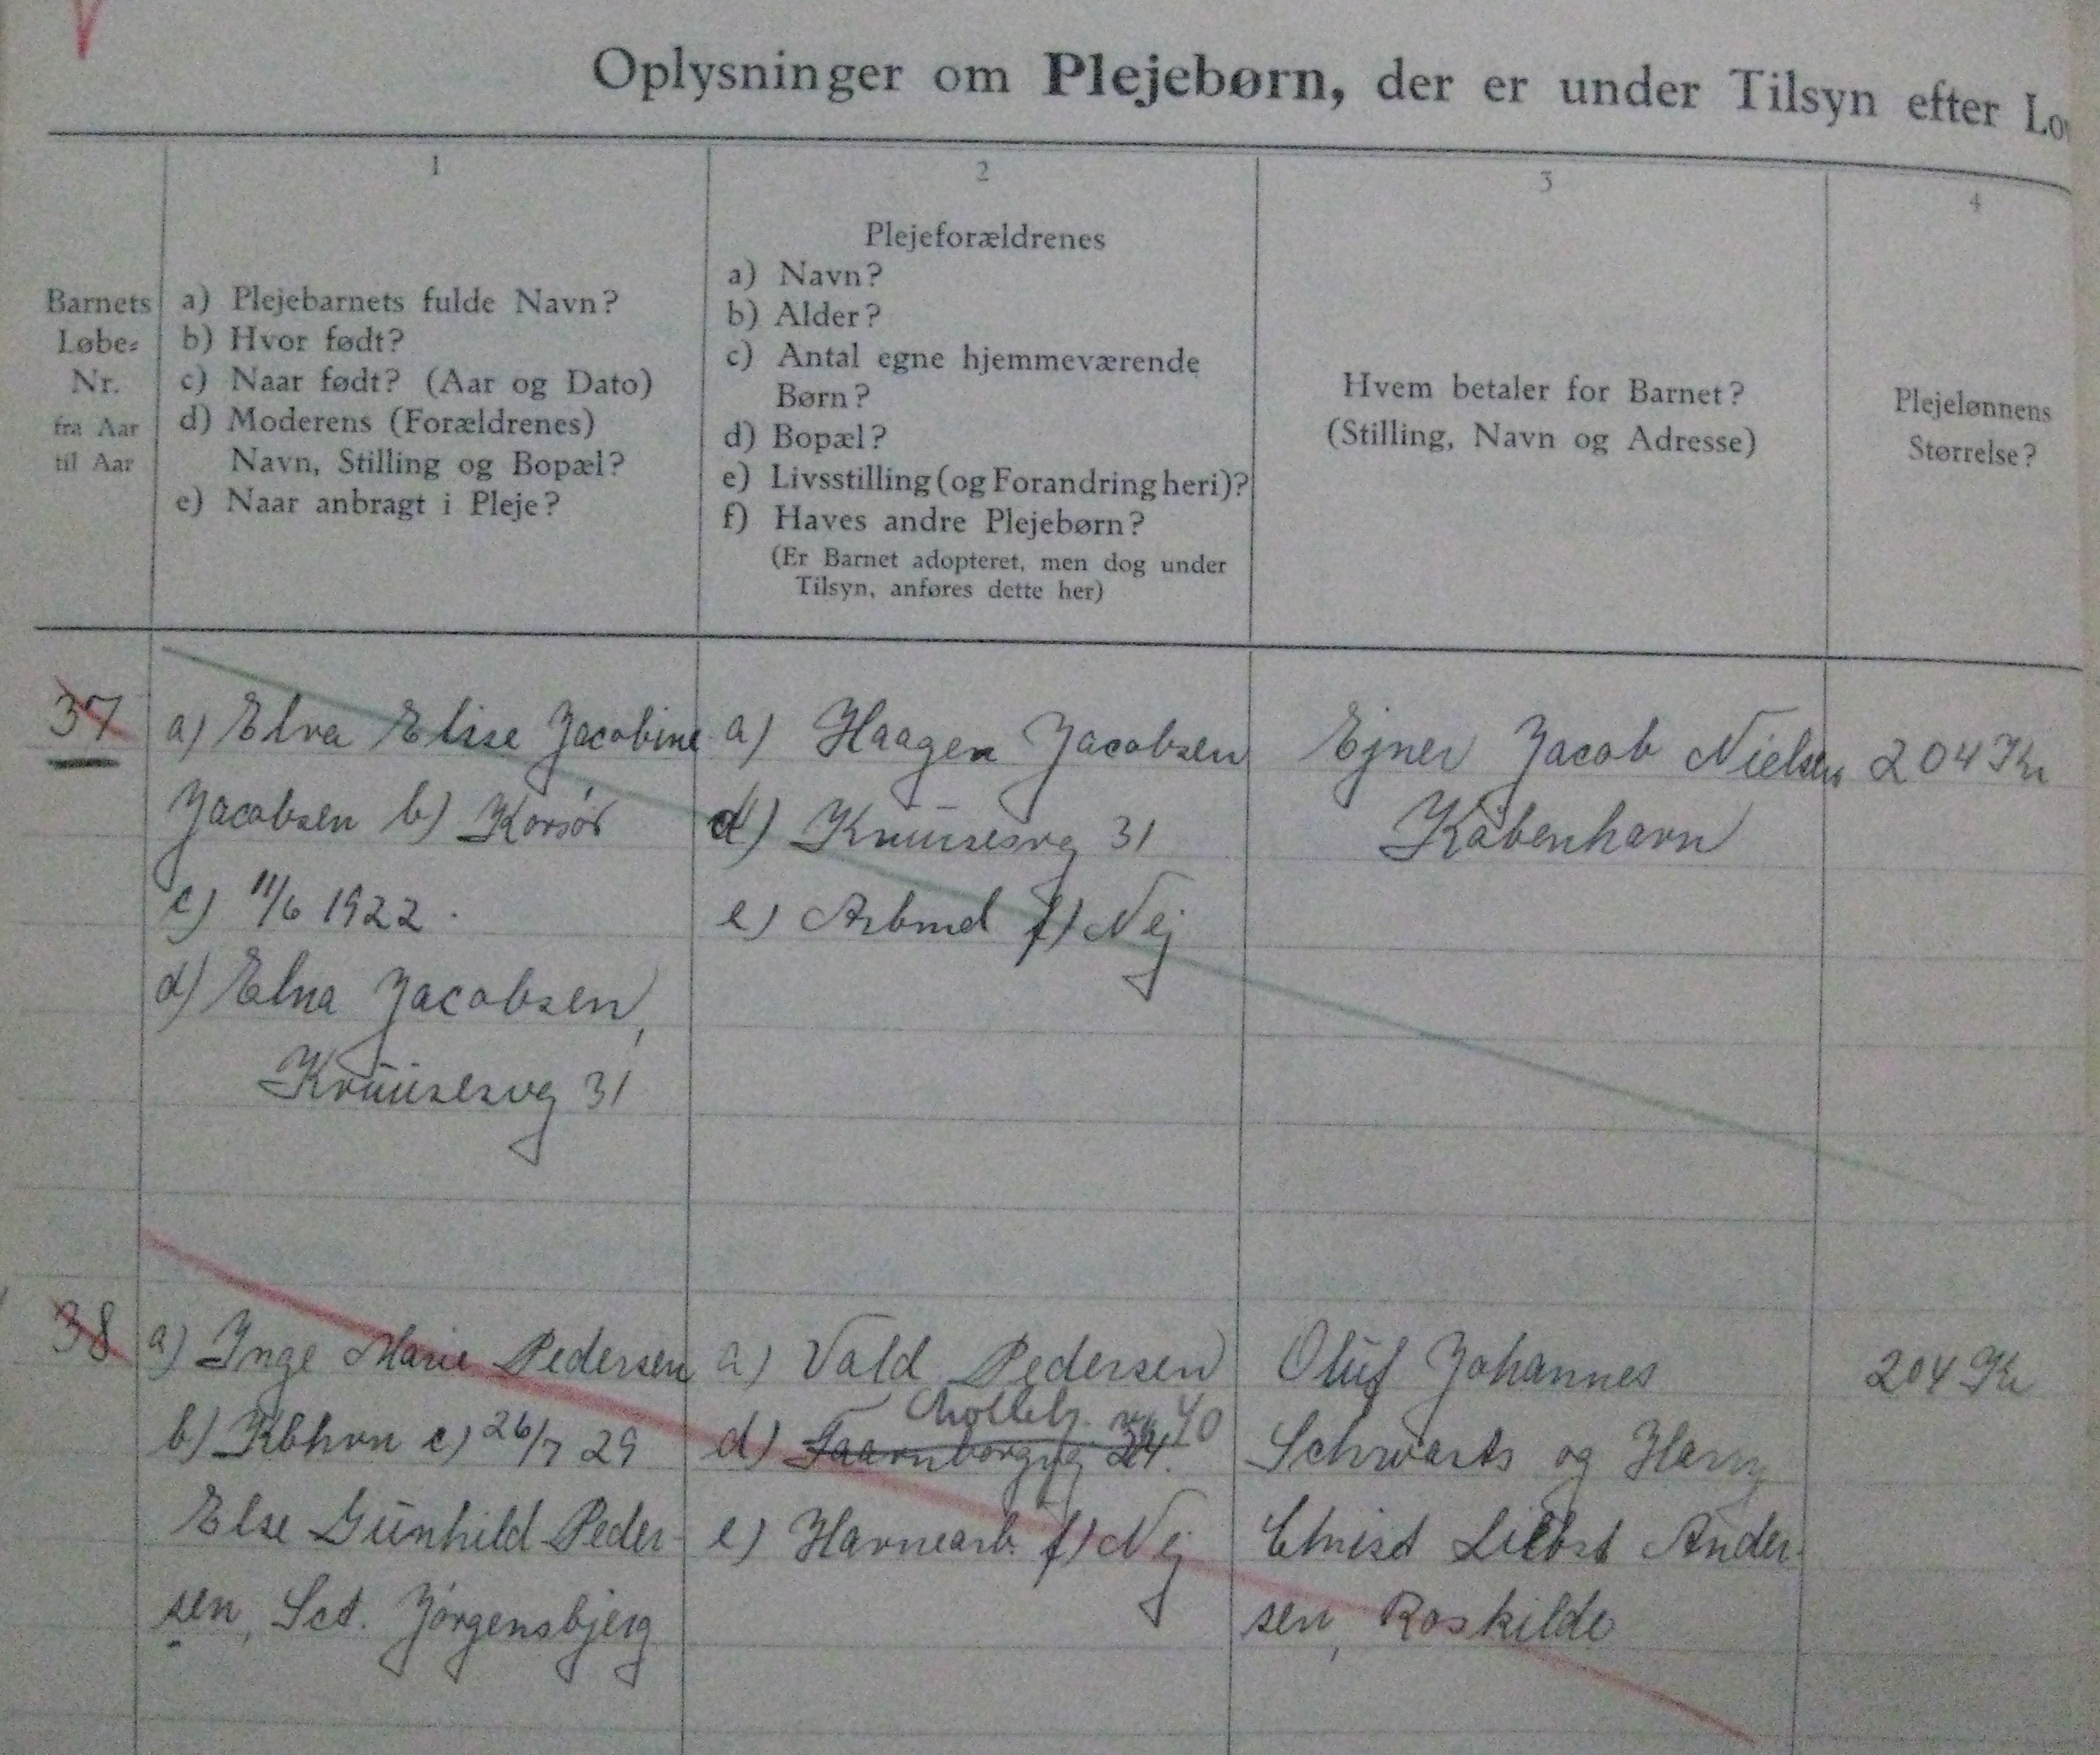 Oplysninger om Plejebørn, der er under Tilsyn efter Lov
1
2
3
4
Barnets
Løbe=
Nr.
fra Aar
til Aar
a) Plejebarnets fulde Navn?
b) Hvor født?
c) Naar født? (Aar og Dato)
d) Moderens (Forældrenes)
Navn, Stilling og Bopæl?
e) Naar anbragt i Pleje?
Plejeforældrenes
a) Navn?
b) Alder?
c) Antal egne hjemmeværende
Børn?
d) Bopæl?
e) Livsstilling (og Forandring heri)?
f) Haves andre Plejebørn?
(Er Barnet adopteret, men dog under
Tilsyn, anføres dette her)
Hvem betaler for Barnet?
(Stilling, Navn og Adresse)
Plejelønnens
Størrelse?
37
a) Elva Elise Jacobine
Jacobsen b) Korsør
c) 11/6 1922.
d) Elna Jacobsen,
Kruusesvg 31
a) Haagen Jacobsen
d) Kruusesvg 31
e) Arbmd f) Nej
Ejner Jacob Nielsen
København
204 Kr
38
a) Inge Marie Pedersen
b) Kbhvn c) 26/7 29
Else Gunhild Peder-
sen, Sct. Jørgensbjerg
a) Vald. Pedersen
vg 40
d) Taarnborgvg 24.
e) Havnearb. f) Nej
Oluf Johannes
Schwarts og Harry
Christ Ander-
sen, Roskilde
204 Kr